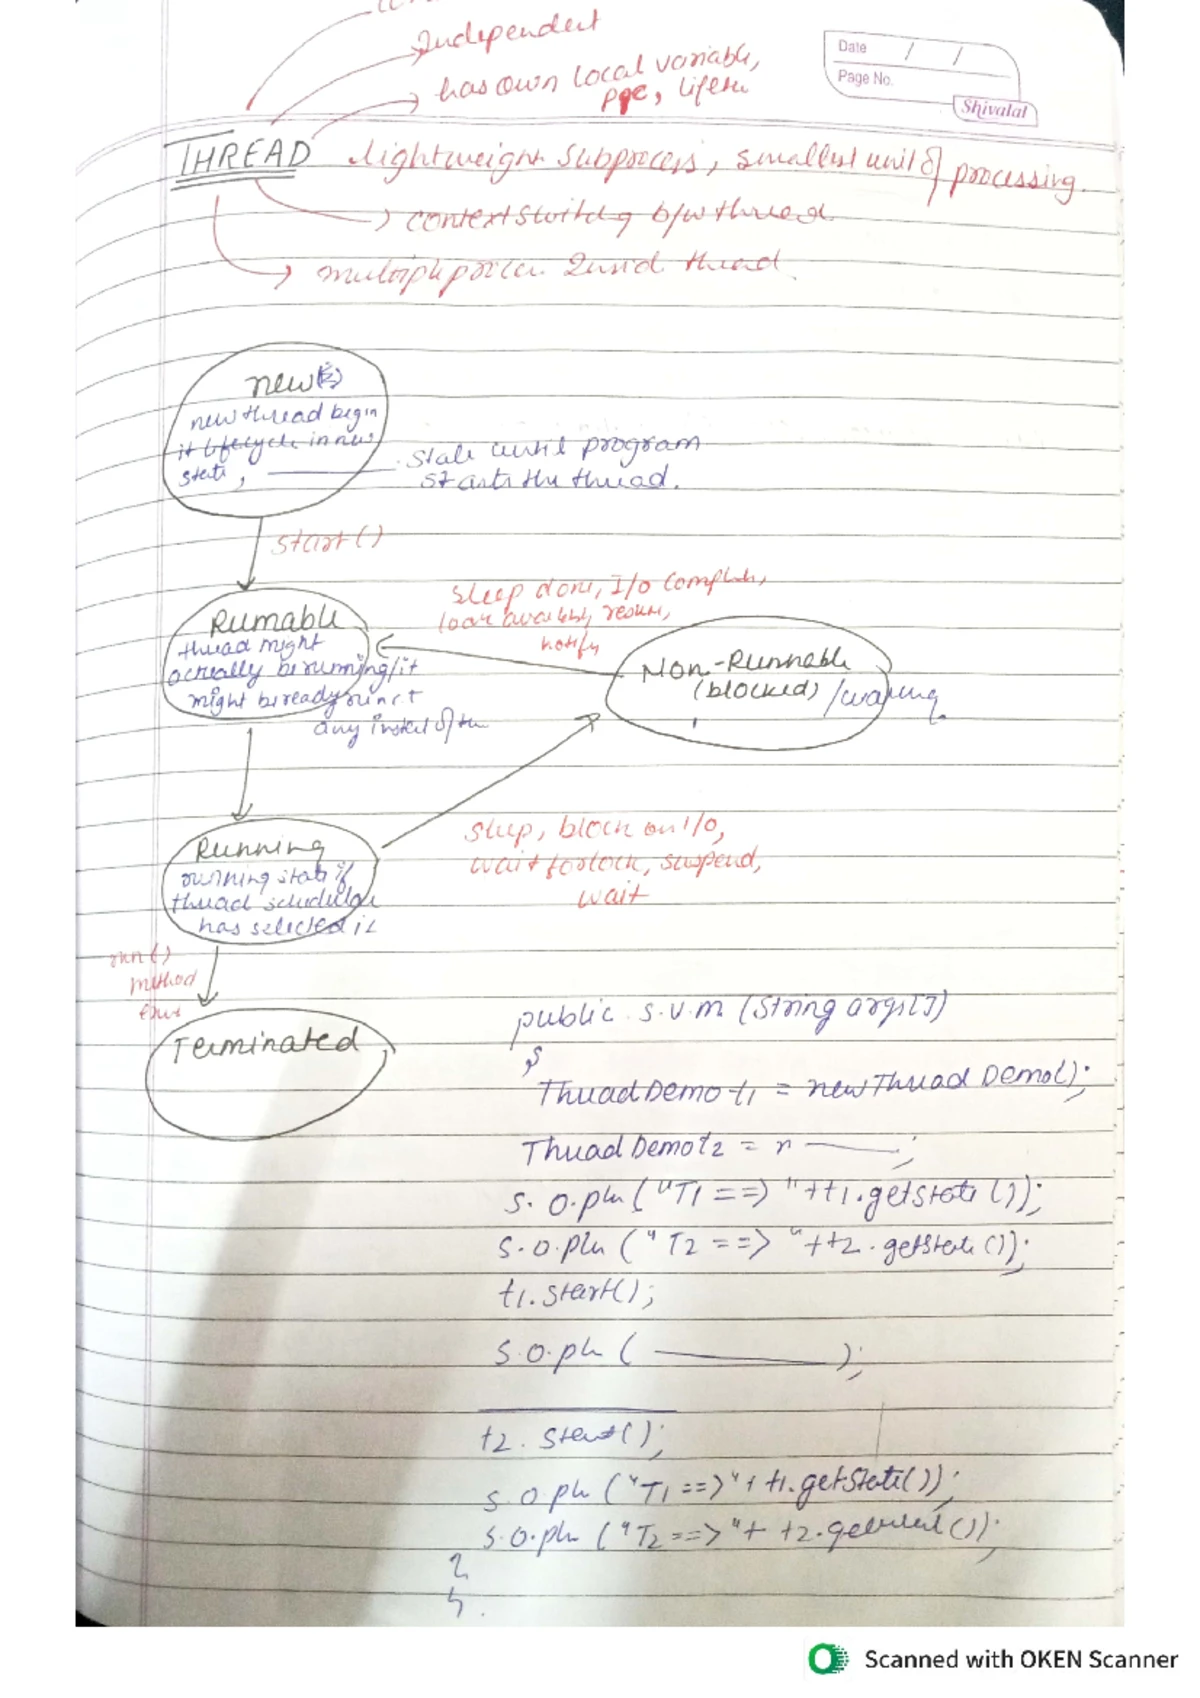 Independent
Date / /
has own local variable,
Page No.
ppc,
Shivalal
THREAD lightweight subprocess, smallest unit of processing.
context switchg b/w thread
thread
new
new thread begin
it lifecycle in new
state, ———— . State until program
starts the thread.
start()
sleep done, I/O complete,
notify
Runnable
thread might
actually be running/it
might be ready run at
any
Non-Runnable
(blocked) /waiting
Running
running state if
thread scheduler
has selected it
sleep, block on I/O,
wait for lock, suspend,
wait
run()
method
Terminated
public s.v.m (String args[])
{
ThreadDemo t1 = new Thread Demo();
Thread Demo t2 = n ———;
S.O.pln ("T1 ==>"+t1.getState());
S.O.pln ("T2 ==>"+t2.getState());
t1.start();
S.O.pln ( ———— );
t2.start();
S.O.pln ("T1 ==>"+ t1.getState());
S.O.pln ("T2 ==>"+ t2.getState());
}
}
Scanned with OKEN Scanner